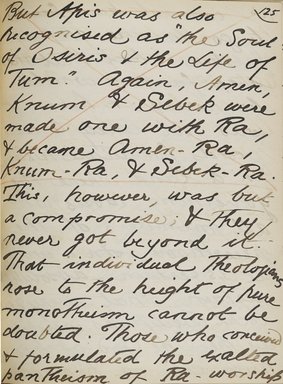 125
But Apis was also
recognised as "the Soul
of Osiris & the Life of
Tum". Again, Amen,
Knum & Sebek were
made one with Ra,
& became Amen-Ra,
Knum-Ra, & Sebek-Ra.
This, however, was but
a compromise; & they
never got beyond it.
That individual Theologians
rose to the height of pure
monotheism cannot be
doubted. Those who conceived
& formulated the exalted
pantheism of Ra-worship